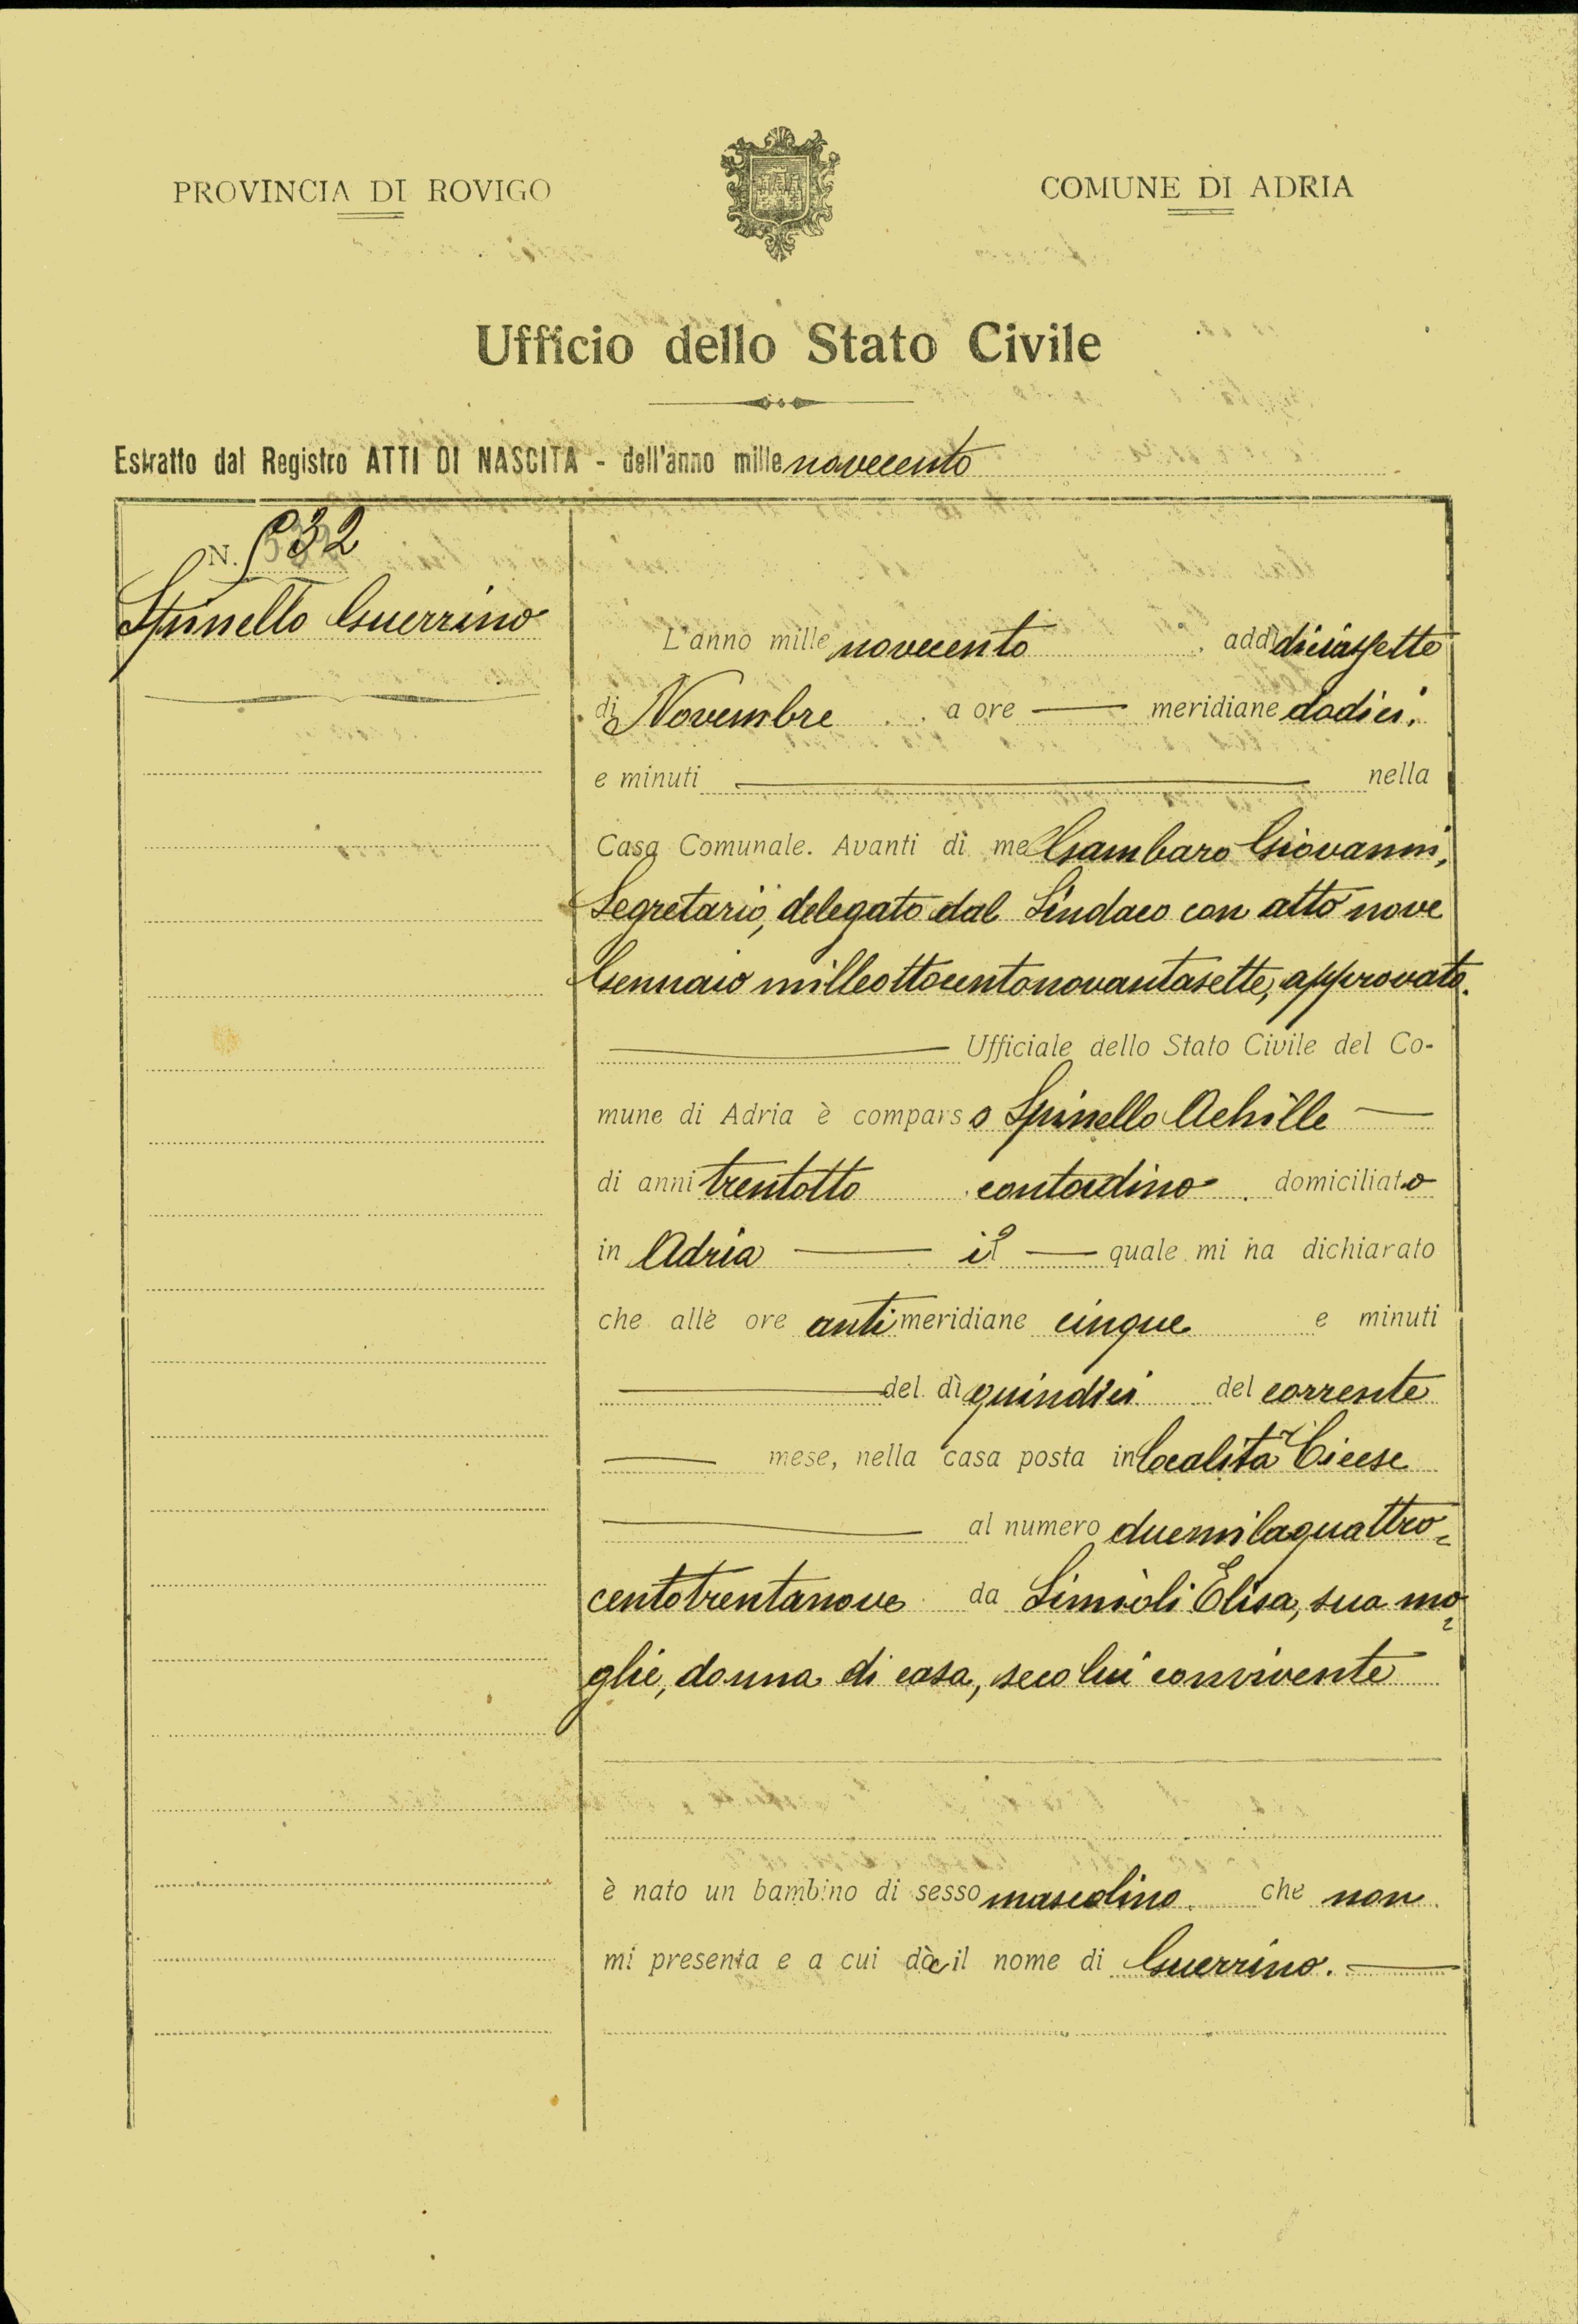 PROVINCIA DI ROVIGO
COMUNE DI ADRIA
Ufficio dello Stato Civile
Estratto dal Registro ATTI DI NASCITA - dell'anno mille novecento
N. 532
Spinello Guerrino
L'anno mille novecento, addì diciassette
di Novembre a ore — meridiane dodici,
e minuti — nella
Casa Comunale. Avanti di me Gambaro Giovanni,
Segretario, delegato dal Sindaco con atto nove
Gennaio milleottocentonovantasette, approvato.
— Ufficiale dello Stato Civile del Co-
mune di Adria è comparso Spinello Achille —
di anni trentotto contadino domiciliato
in Adria — il — quale mi ha dichiarato
che alle ore antimeridiane cinque e minuti
— del dì quindici del corrente
— mese, nella casa posta in Località Cicese
— al numero duemilaquattro=
centotrentanove da Simioli Elisa, sua mo=
glie, donna di casa, seco lui convivente
è nato un bambino di sesso mascolino che non
mi presenta e a cui dà il nome di Guerrino. —